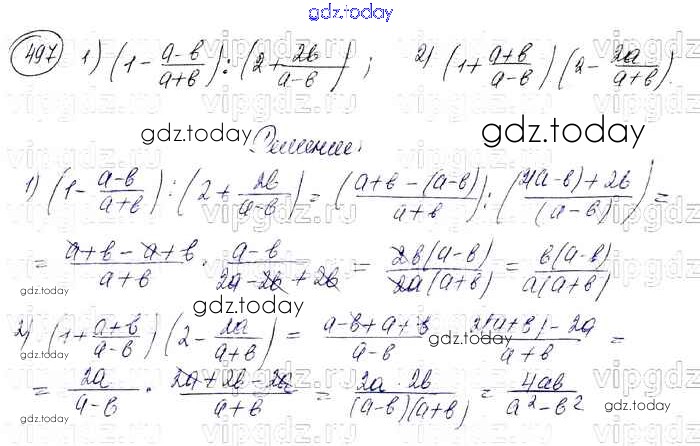 gdz.today
497 1) (1 - (a-b)/(a+b)) : (2 + 2b/(a-b)) ; 2) (1 + (a+b)/(a-b)) (2 - 2a/(a+b)).
gdz.today gdz.today
Решение.
1) (1 - (a-b)/(a+b)) : (2 + 2b/(a-b)) = ((a+b-(a-b))/(a+b)) : ((2(a-b)+2b)/(a-b)) =
= (a+b-a+b)/(a+b) · (a-b)/(2a-2b+2b) = 2b(a-b)/(2a(a+b)) = b(a-b)/(a(a+b))
gdz.today gdz.today gdz.today
2) (1 + (a+b)/(a-b)) (2 - 2a/(a+b)) = (a-b+a+b)/(a-b) · (2(a+b)-2a)/(a+b) =
= 2a/(a-b) · (2a+2b-2a)/(a+b) = (2a·2b)/((a-b)(a+b)) = 4ab/(a²-b²)
gdz.today gdz.today gdz.today